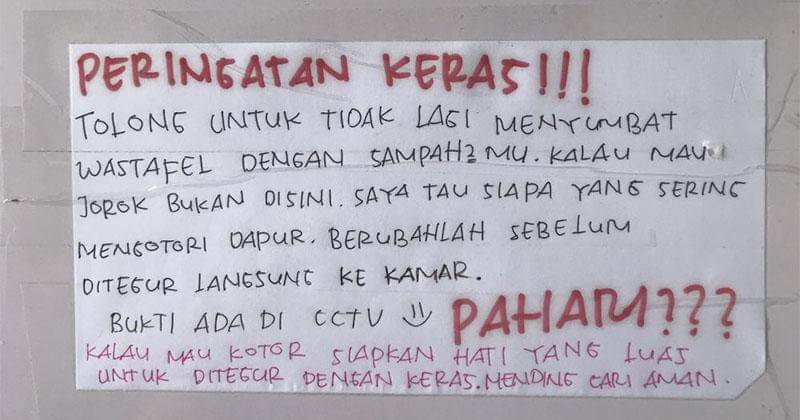 PERINGATAN KERAS!!!
TOLONG UNTUK TIDAK LAGI MENYUMBAT
WASTAFEL DENGAN SAMPAH2 MU. KALAU MAU
JOROK BUKAN DISINI. SAYA TAU SIAPA YANG SERING
MENGOTORI DAPUR. BERUBAHLAH SEBELUM
DITEGUR LANGSUNG KE KAMAR.
BUKTI ADA DI CCTV PAHAM???
KALAU MAU KOTOR SIAPKAN HATI YANG LUAS
UNTUK DITEGUR DENGAN KERAS. MENDING CARI AMAN.